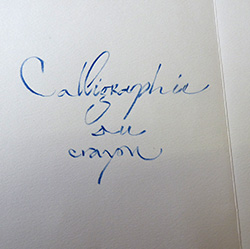 Calligraphie
au
crayon